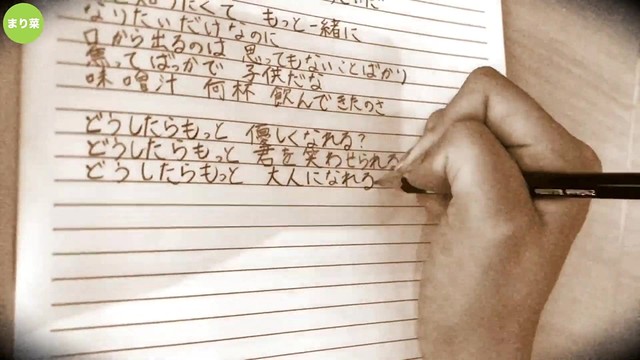 まり菜
知りたくて、もっと一緒に
なりたいだけなのに
口から出るのは 思ってもないことばかり
焦ってばっかで 子供だな
味噌汁 何杯 飲んできたのさ
どうしたらもっと 優しくなれる?
どうしたらもっと 君を笑わせられる
どうしたらもっと 大人になれる